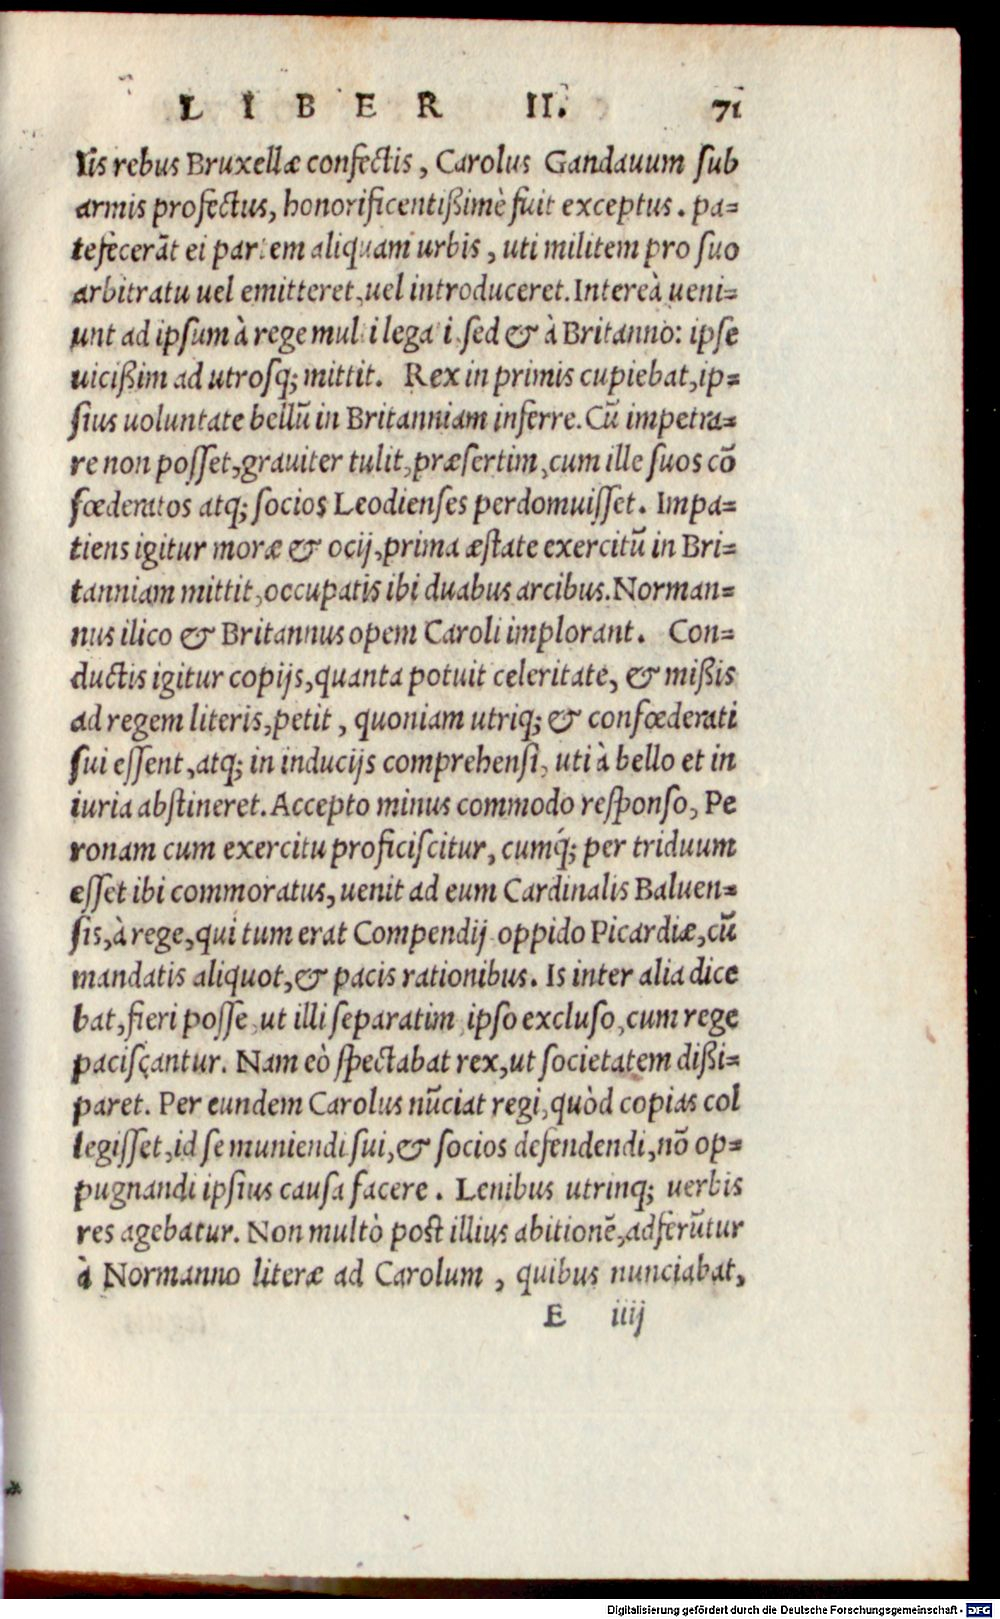 LIBER II. 71
Iis rebus Bruxellæ confectis, Carolus Gandauum sub
armis profectus, honorificentißimè fuit exceptus. pa=
tefecerāt ei partem aliquam urbis, uti militem pro suo
arbitratu uel emitteret, uel introduceret. Intereà ueni=
unt ad ipsum à rege multi legati. sed & à Britanno: ipse
uicißim ad utrosq; mittit. Rex in primis cupiebat, ip=
sius uoluntate bellū in Britanniam inferre. Cū impetra=
re non posset, grauiter tulit, præsertim, cum ille suos cō
fœderatos atq; socios Leodienses perdomuisset. Impa=
tiens igitur moræ & ocij, prima æstate exercitū in Bri=
tanniam mittit, occupatis ibi duabus arcibus. Norman=
nus ilico & Britannus opem Caroli implorant. Con=
ductis igitur copijs, quanta potuit celeritate, & mißis
ad regem literis, petit, quoniam utriq; & confœderati
sui essent, atq; in inducijs comprehensi, uti à bello et in
iuria abstineret. Accepto minus commodo responso, Pe
ronam cum exercitu proficiscitur, cumq́; per triduum
esset ibi commoratus, uenit ad eum Cardinalis Baluen=
sis, à rege, qui tum erat Compendij oppido Picardiæ, cū
mandatis aliquot, & pacis rationibus. Is inter alia dice
bat, fieri posse, ut illi separatim ipso excluso, cum rege
paciscantur. Nam eò spectabat rex, ut societatem dißi=
paret. Per eundem Carolus nūciat regi, quòd copias col
legisset, id se muniendi sui, & socios defendendi, nō op=
pugnandi ipsius causa facere. Lenibus utrinq; uerbis
res agebatur. Non multò post illius abitionē, adferūtur
à Normanno literæ ad Carolum, quibus nunciabat,
E iiij
Digitalisierung gefördert durch die Deutsche Forschungsgemeinschaft - DFG